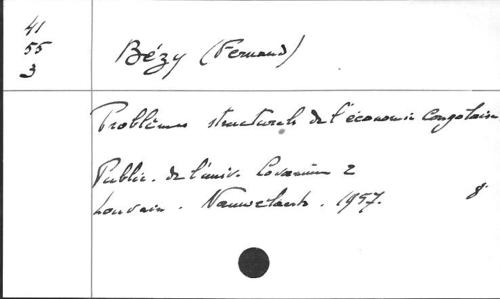 41
55
3
Bézy (Fernand)
Problèmes structurels de l'économie Congolaise
Public. de l'univ. Lovanium 2
Louvain. Nauwelaerts. 1957. 8°